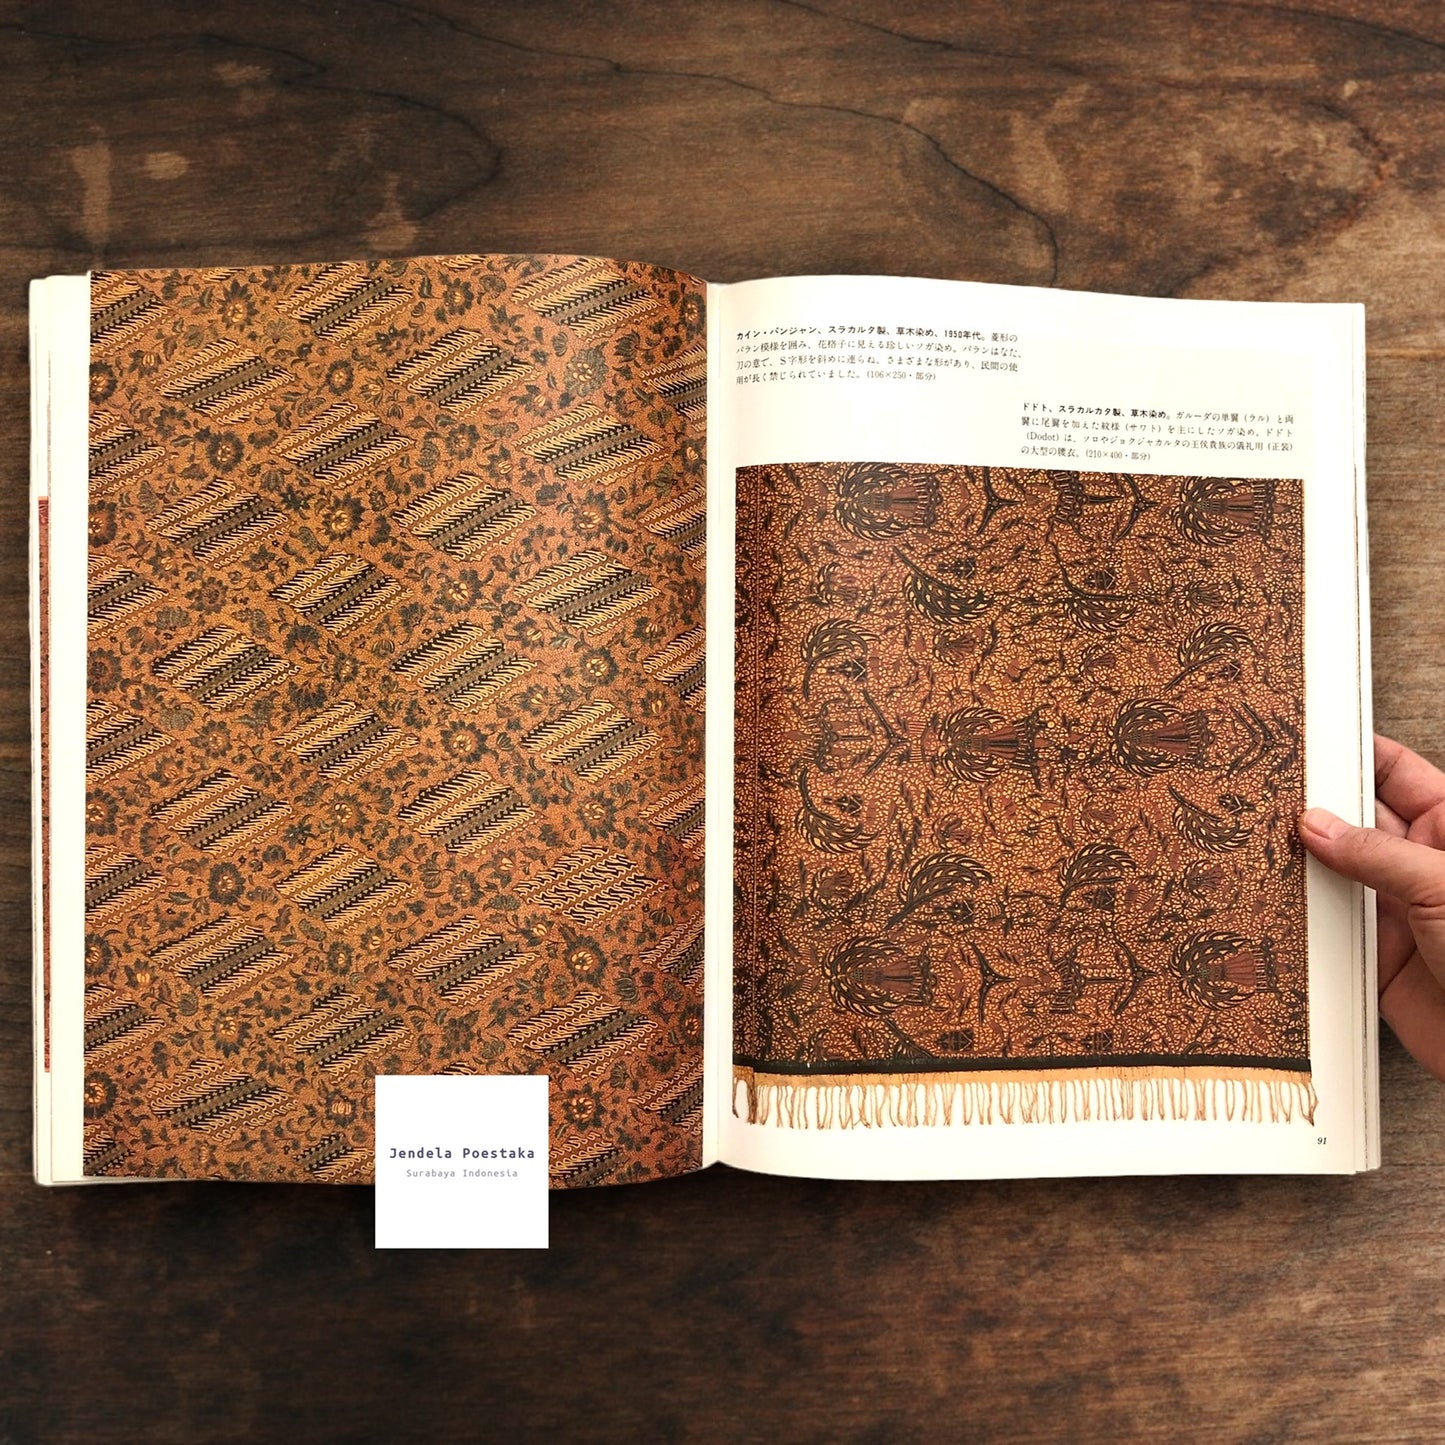 カイン・パンジャン、スラカルタ製、草木染め、1950年代。菱形の
パラン模様を囲み、花格子に見える珍しいソガ染め。パランはなた、
刀の意で、S字形を斜めに連らね、さまざまな形があり、民間の使
用が長く禁じられていました。(106×250・部分)
ドドト、スラカルカタ製、草木染め。ガルーダの単翼（ラル）と両
翼に尾翼を加えた紋様（サワト）を主にしたソガ染め。ドドト
（Dodot）は、ソロやジョクジャカルタの王侯貴族の儀礼用（正装）
の大型の腰衣。(210×400・部分)
91
Jendela Poestaka
Surabaya Indonesia